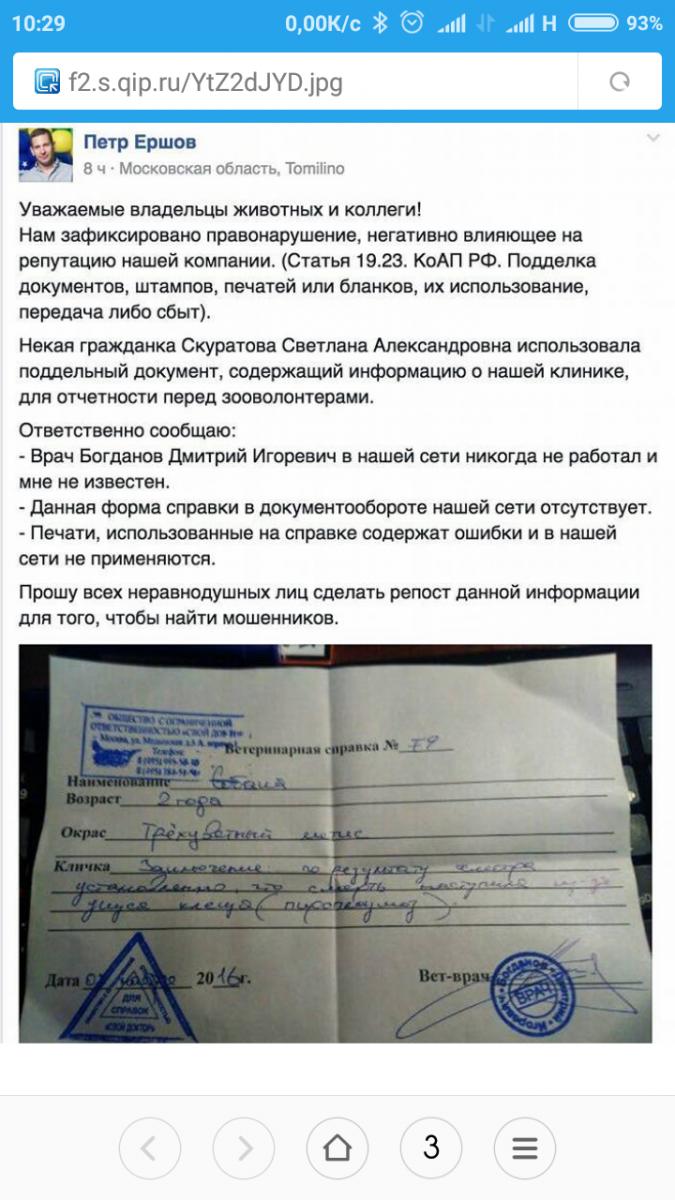 10:29
0,00K/c
H
93%
f2.s.qip.ru/YtZ2dJYD.jpg
Петр Ершов
8 ч · Московская область, Tomilino
Уважаемые владельцы животных и коллеги!
Нам зафиксировано правонарушение, негативно влияющее на
репутацию нашей компании. (Статья 19.23. КоАП РФ. Подделка
документов, штампов, печатей или бланков, их использование,
передача либо сбыт).
Некая гражданка Скуратова Светлана Александровна использовала
поддельный документ, содержащий информацию о нашей клинике,
для отчетности перед зооволонтерами.
Ответственно сообщаю:
- Врач Богданов Дмитрий Игоревич в нашей сети никогда не работал и
мне не известен.
- Данная форма справки в документообороте нашей сети отсутствует.
- Печати, использованные на справке содержат ошибки и в нашей
сети не применяются.
Прошу всех неравнодушных лиц сделать репост данной информации
для того, чтобы найти мошенников.
ОБЩЕСТВО С ОГРАНИЧЕННОЙ
ОТВЕТСТВЕННОСТЬЮ
Москва, ул.
Телефон:
Ветеринарная справка № 79
Наименование Собака
Возраст 2 года
Окрас Трёхцветный метис
Кличка Заключение: по результату осмотра
установленно, что смерть наступила из за
укуса клеща (пироплазмоз)
Дата 2016г.
Вет-врач
ДЛЯ
СПРАВОК
«СВОЙ ДОКТОР»
Богданов Дмитрий Игоревич
ВРАЧ
3